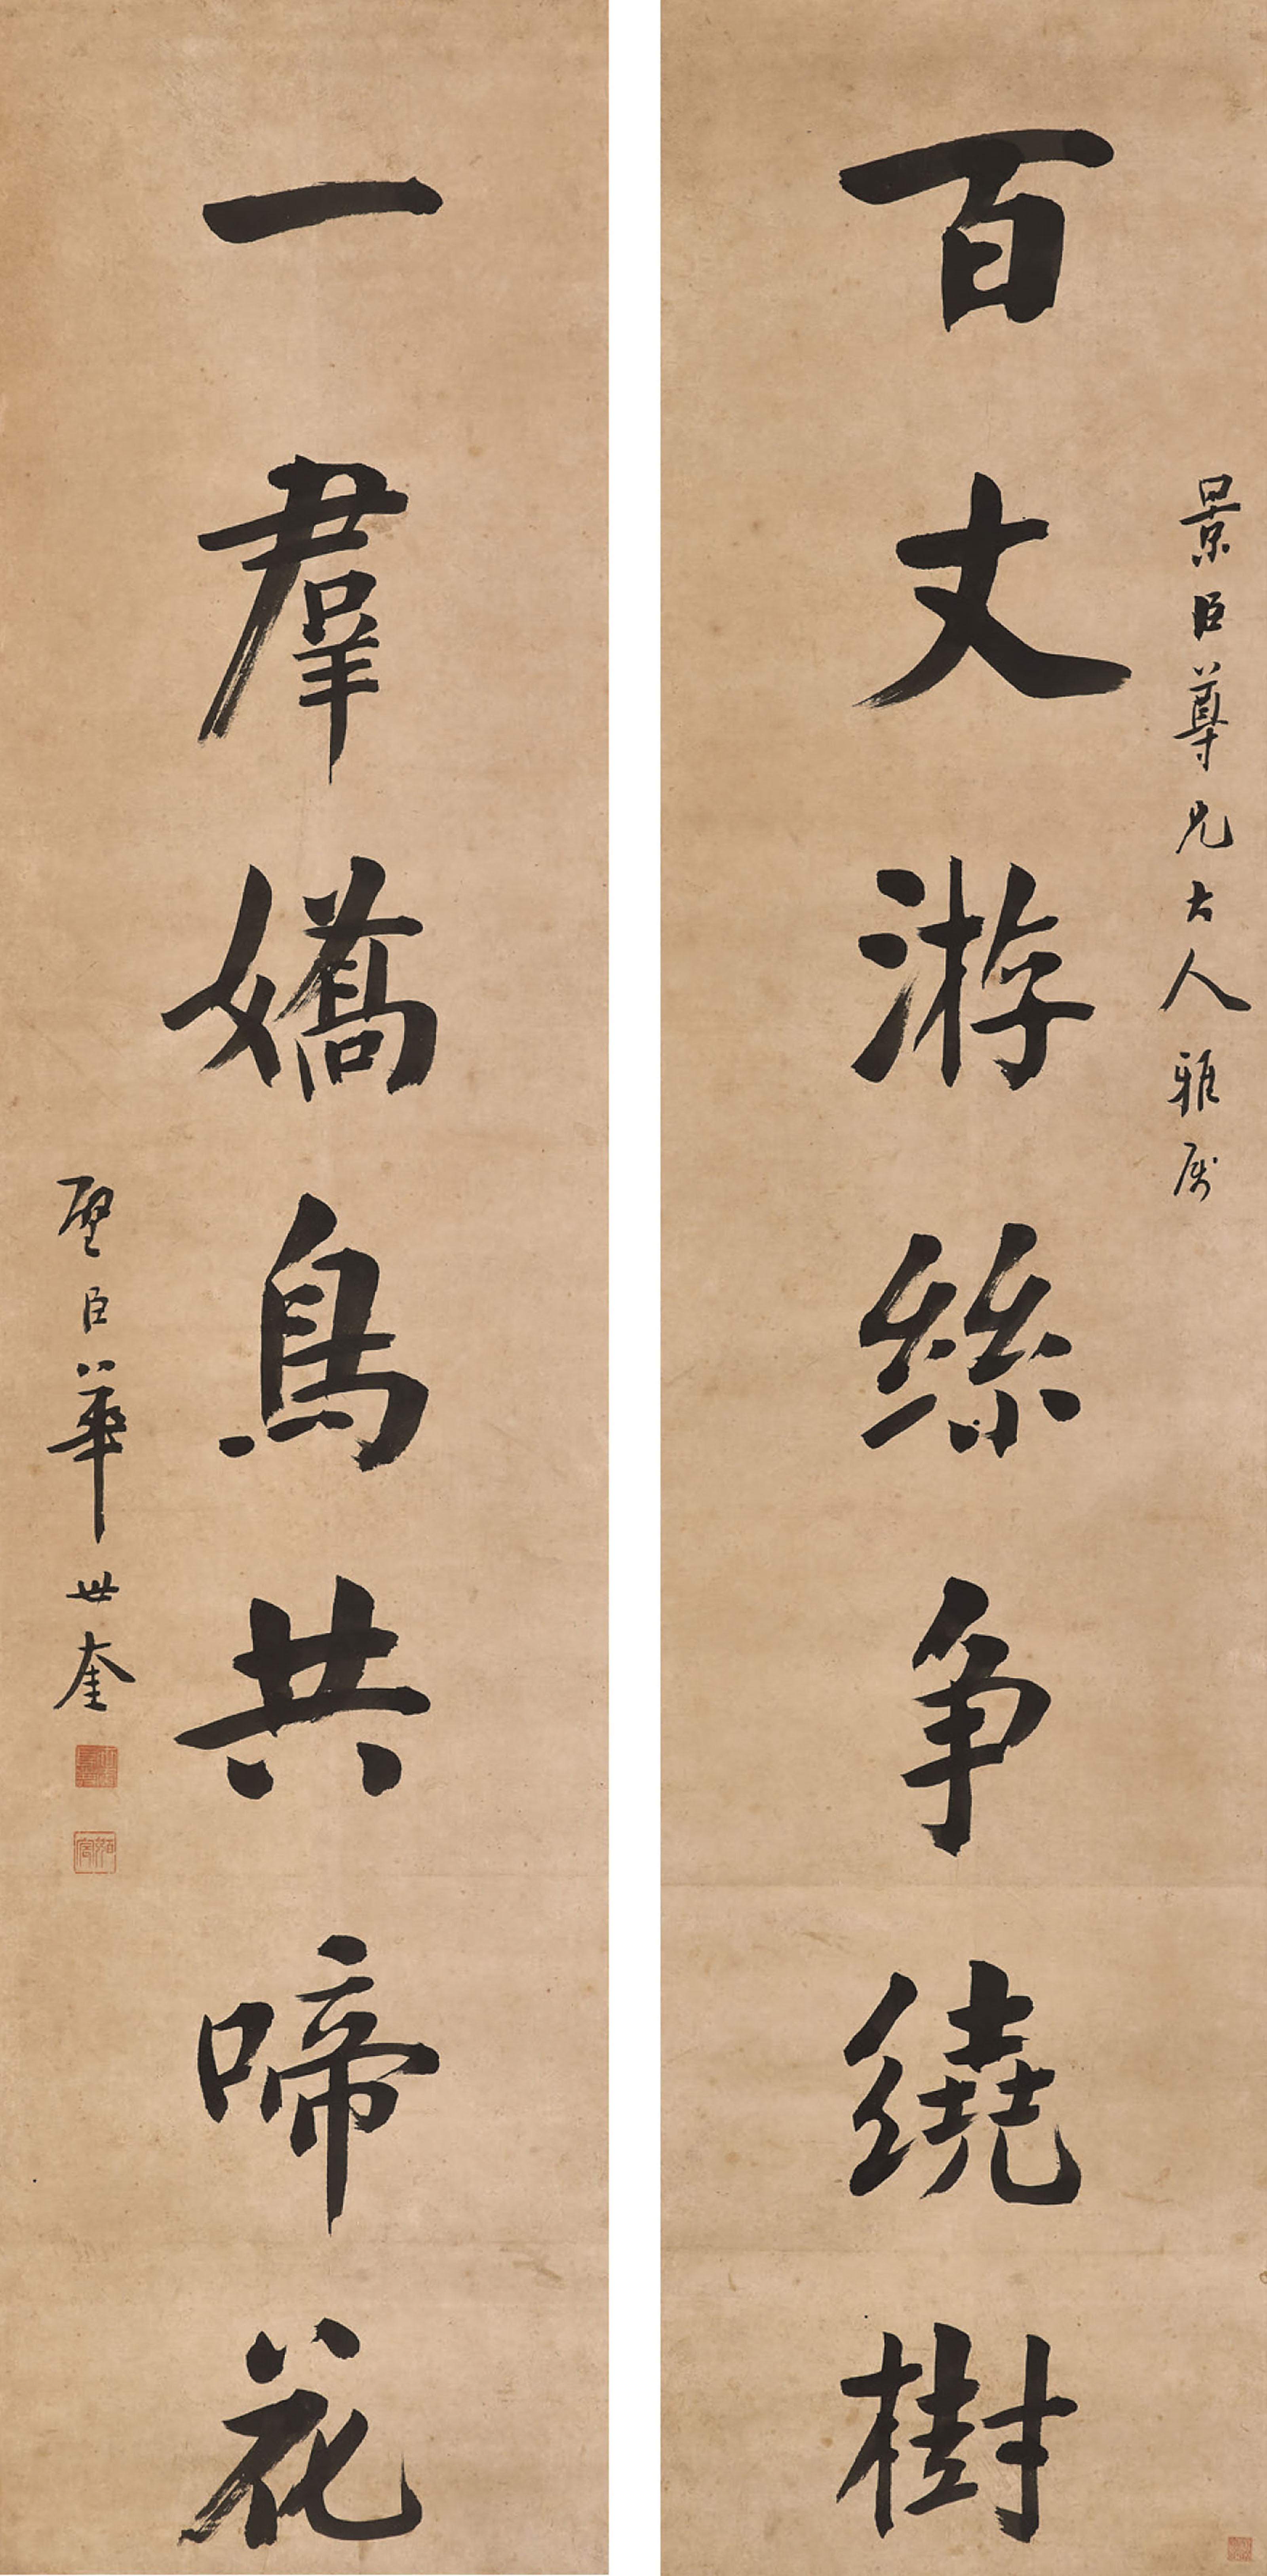 景臣尊兄大人雅属
百丈游絲争繞樹
一羣嬌鳥共啼花
璧臣華世奎